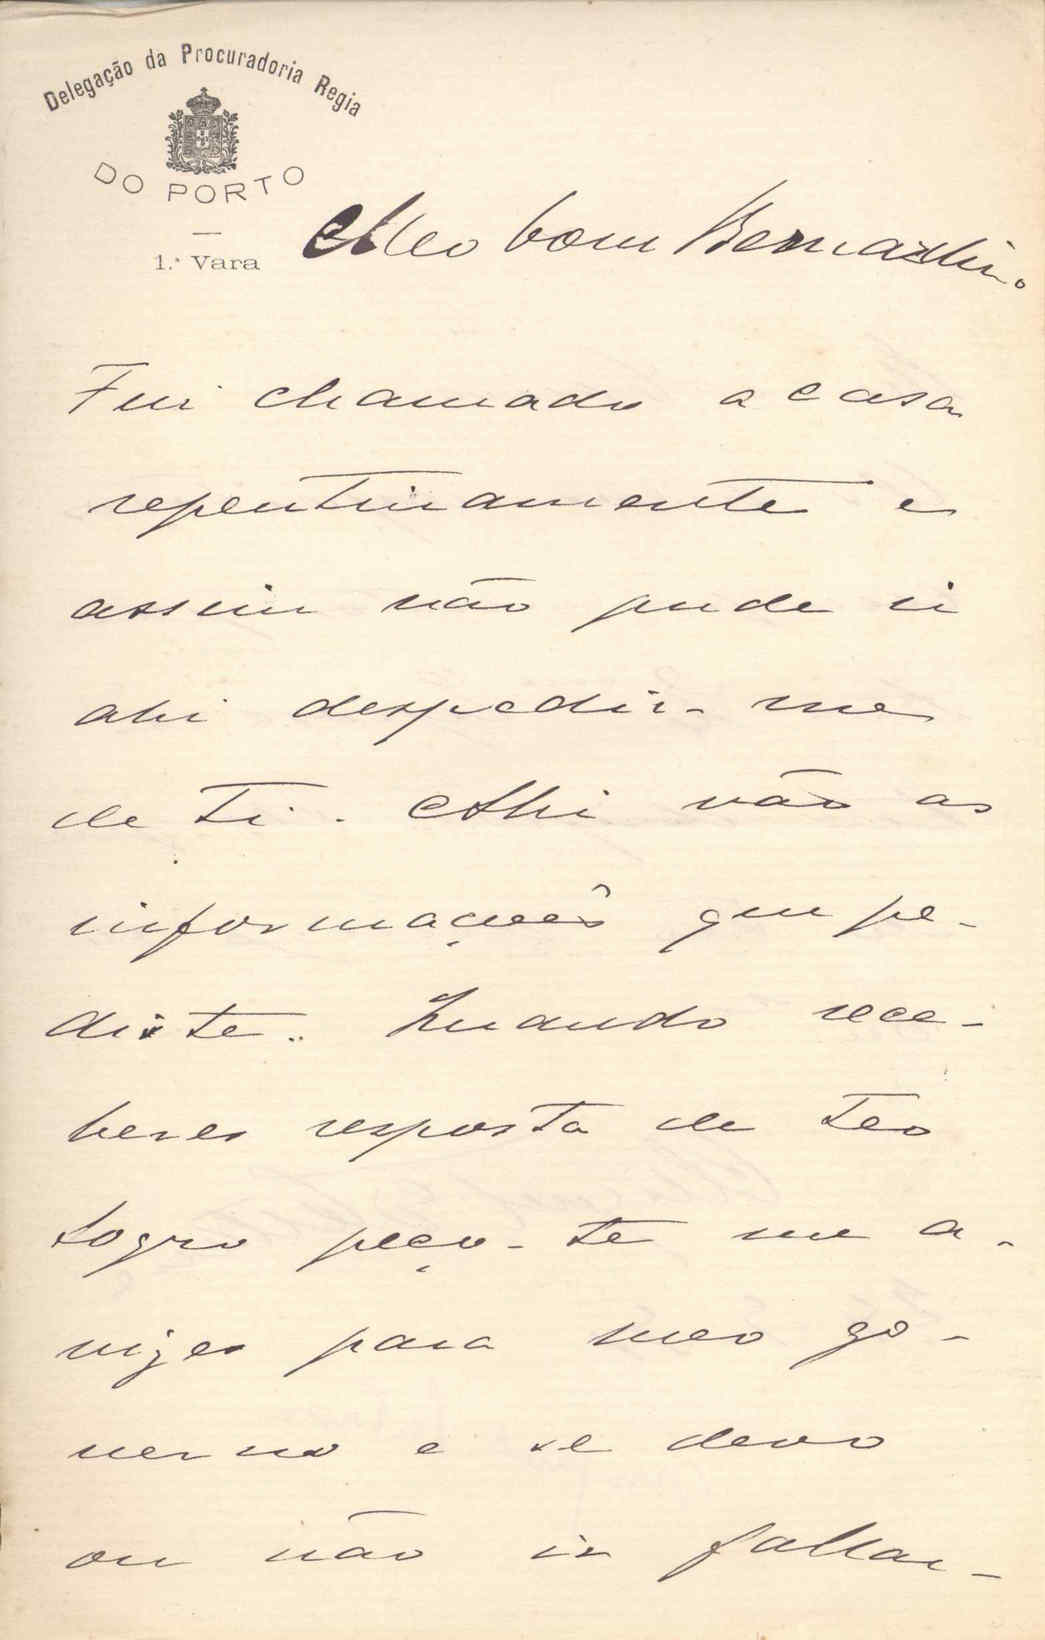 Delegação da Procuradoria Regia
DO PORTO
1.ª Vara
Meo bom Bernardino
Fui chamado a casa
repentinamente e
assim não pude ir
ahi despedir-me
de ti. Ahi vão as
informações que pe-
diste. Quando rece-
beres resposta de teo
sogro peço-te me a-
vizes para meo go-
verno e se devo
ou não ir fallar-